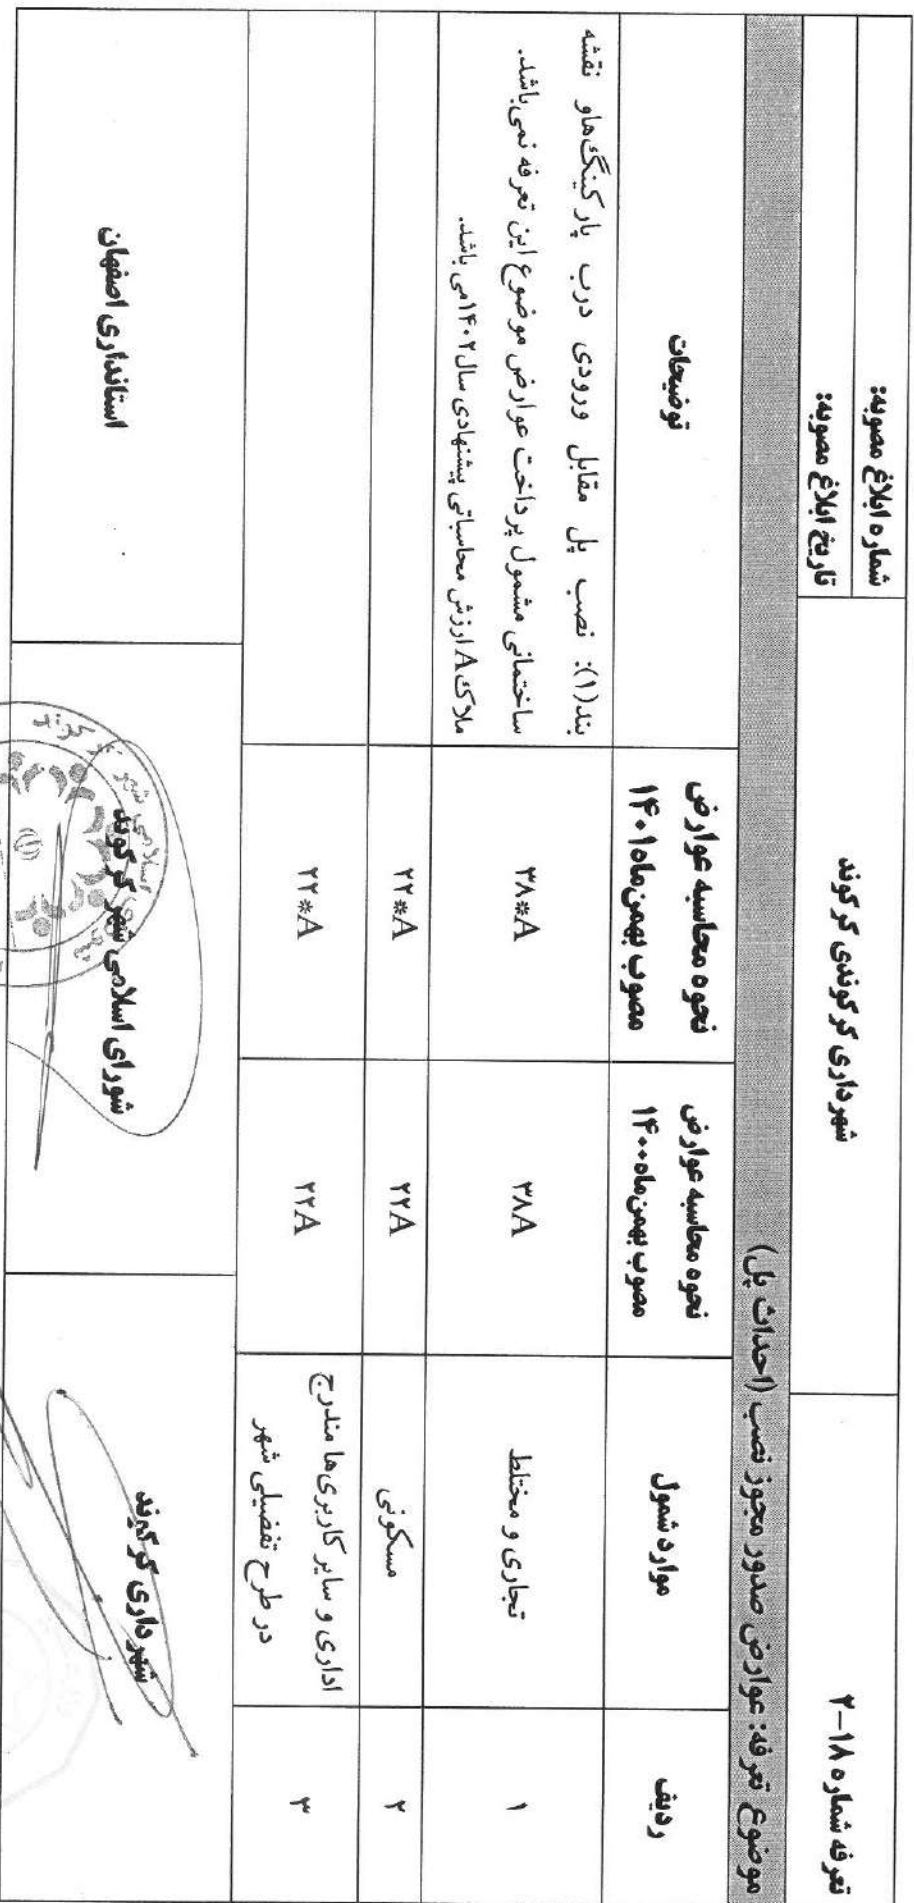 تعرفه شماره ۱۸-۲
شهرداری کرکوندی کرکوند
شماره ابلاغ مصوبه:
تاریخ ابلاغ مصوبه:
موضوع تعرفه: عوارض صدور مجوز نصب (احداث پل)
ردیف
موارد شمول
نحوه محاسبه عوارض
مصوب بهمن‌ماه ۱۴۰۰
نحوه محاسبه عوارض
مصوب بهمن‌ماه ۱۴۰۱
توضیحات
۱
تجاری و مختلط
۳۸A
۳۸*A
بند(۱): نصب پل مقابل ورودی درب پارکینگ‌هاو نقشه
ساختمانی مشمول پرداخت عوارض موضوع این تعرفه نمی‌باشد.
ملاک A ارزش محاسباتی پیشنهادی سال ۱۴۰۲ می باشد.
۲
مسکونی
۲۲A
۲۲*A
۳
اداری و سایر کاربری‌ها مندرج
در طرح تفضیلی شهر
۲۲A
۲۲*A
شهرداری کرکوند
شورای اسلامی شهر کرکوند
استانداری اصفهان